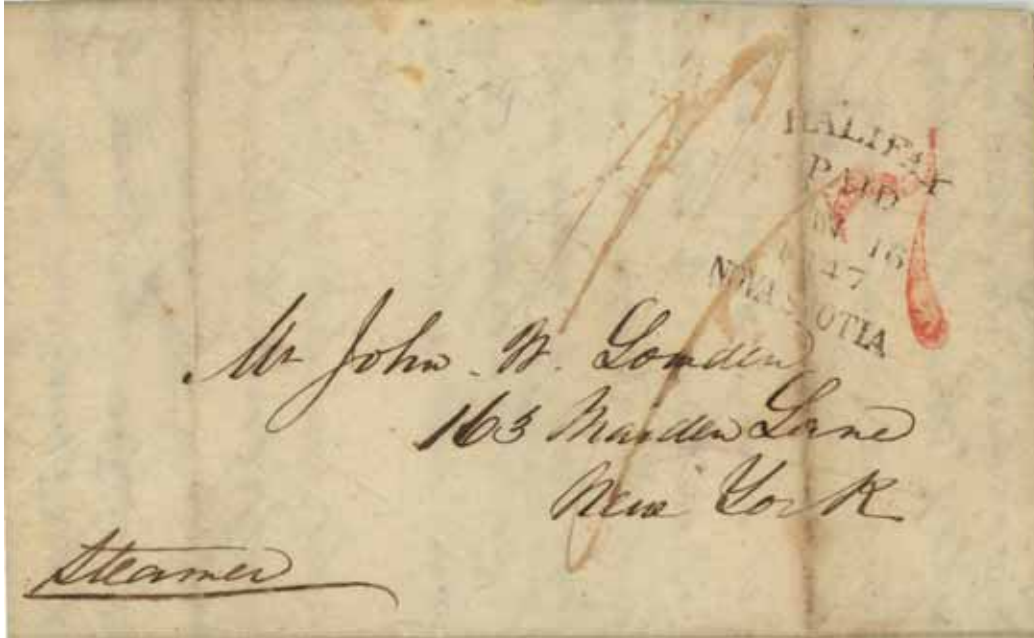 HALIFAX
PAID
16
47
NOVA SCOTIA
7
Mr John. W. Lowden
163 Maiden Lane
New York
Steamer